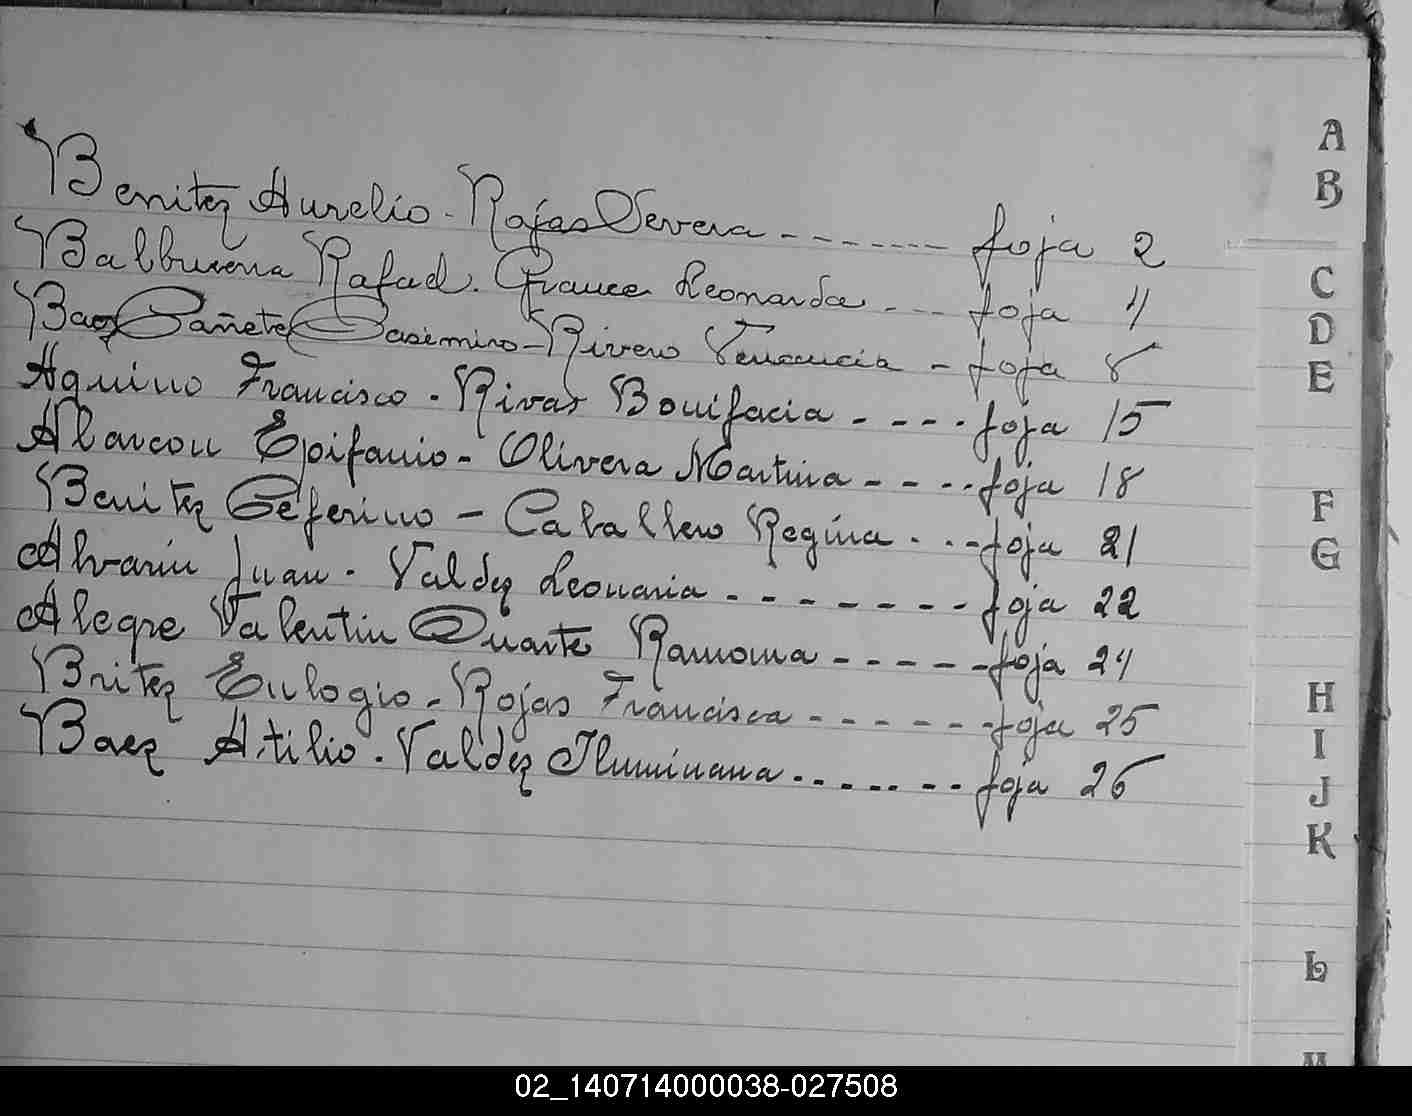 Benitez Aurelio - Rojas Severa ------- foja 2
Balbuena Rafael. Leonarda --- foja 4
Baez Cañete Casimiro - Rivero Venancia - foja 8
Aquino Francisco - Rivas Bonifacia ---- foja 15
Alarcon Epifanio - Olivera Martina ---- foja 18
Benitez Ceferino - Caballero Regina ... foja 21
Juan - Valdez ------- foja 22
Alegre Valentin Duarte Ramona ----- foja 24
Britez Eulogio - Rojas Francisca ------ foja 25
Baez Atilio - Valdez Iluminana ------- foja 26
A
B
C
D
E
F
G
H
I
J
K
L
M
02_140714000038-027508